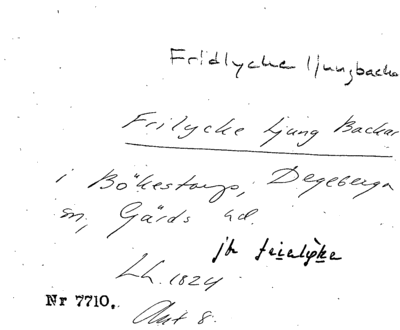 Fridlycke ljungbackar
Frilycke Ljung Backar
i Bökestorps, Degeberga
sn, Gärds hd.
jfr
Lh. 1824
Nr 7710.
Akt 8.